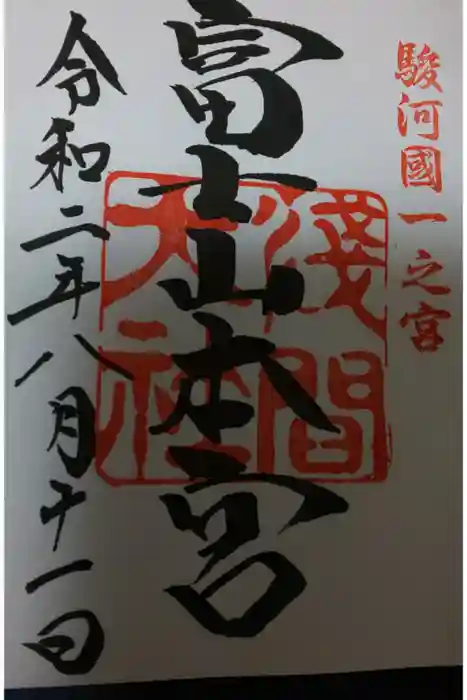 駿河國一之宮
富士山本宮
淺間大社
令和二年八月十一日